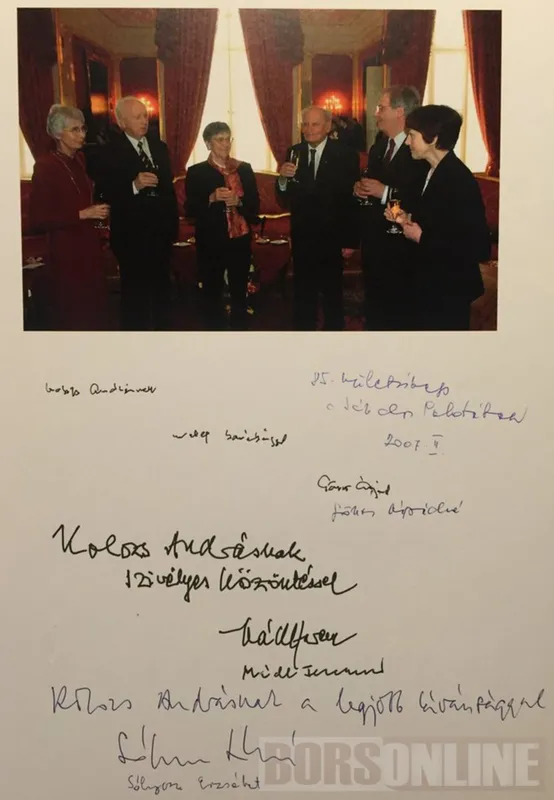 Kolozs Andrásnak
meleg barátsággal
85. születésnap
a Sándor Palotában
2007. II.
Göncz Árpád
Göncz Árpádné
Kolozs Andrásnak
szívélyes köszöntéssel
Mádl Ferenc
Mádl Ferencné
Kolozs Andrásnak a legjobb kívánsággal
Sólyom Erzsébet
BORSONLINE